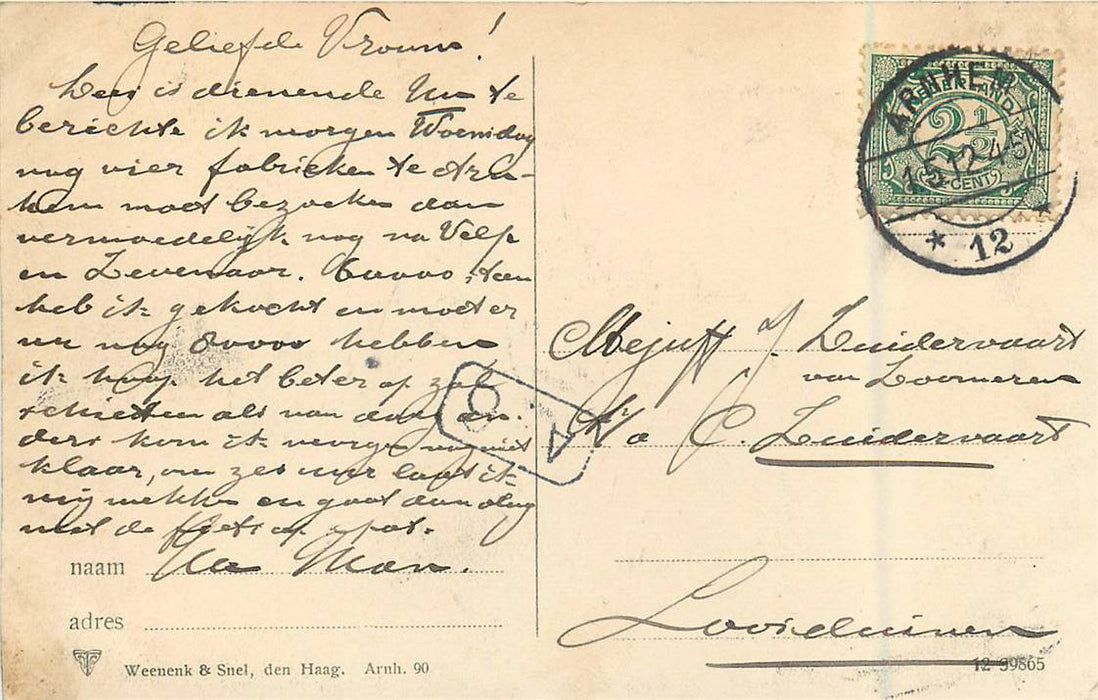 Geliefde Vrouw!
Deze is dienende Um te
berichte ik morgen Woensdag
nog vier fabrieken te Arn-
hem moet bezoeken dan
vermoedelijk nog na Velp
en Zevenaar.
heb ik gekocht en moet er
nu nog 80000 hebben
ik hoop het beter op zal
schieten als van daag an-
ders kom ik morgen nog niet
klaar, om zes uur laat ik
mij wekken en gaat dan dag
met de fiets op
Uw Man.
naam
adres
Weenenk & Snel, den Haag. Arnh. 90
NEDERLAND
2½
CENT
ARNHEM
1.5.12.4-5N
* 12
Mejuff J. Zuidervaart
van
p/a C. Zuidervaart
Loosduinen
12-39865